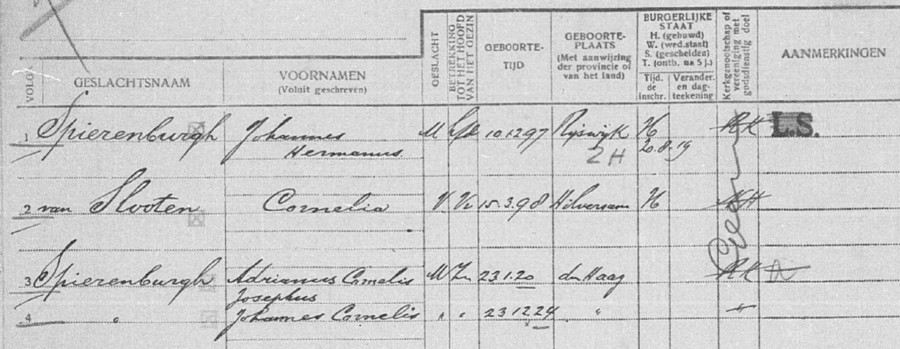 VOLGN.
GESLACHTSNAAM
VOORNAMEN
(Voluit geschreven)
GESLACHT
BETREKKING TOT HET HOOFD VAN HET GEZIN
GEBOORTE-
TIJD
GEBOORTE-
PLAATS
(Met aanwijzing
der provincie of
van het land)
BURGERLIJKE
STAAT
H. (gehuwd)
W. (wed.staat)
S. (gescheiden)
T. (ontb. na 5 j.)
Tijd.
de
inschr.
Verander.
en dag-
teekening
Kerkgenootschap of
vereeniging met
godsdienstig doel
AANMERKINGEN
1 Spierenburgh Johannes M 10.12.97 Rijswijk H RK L.S.
Hermanus ZH 20.8.19
2 van Slooten Cornelia V. Vr 15.3.98 Hilversum H NH
Geen
3 Spierenburgh Adrianus Cornelis M Zn 23.1.20 den Haag RK
Josephus
4 " Johannes Cornelis " " 23.12.24 " "